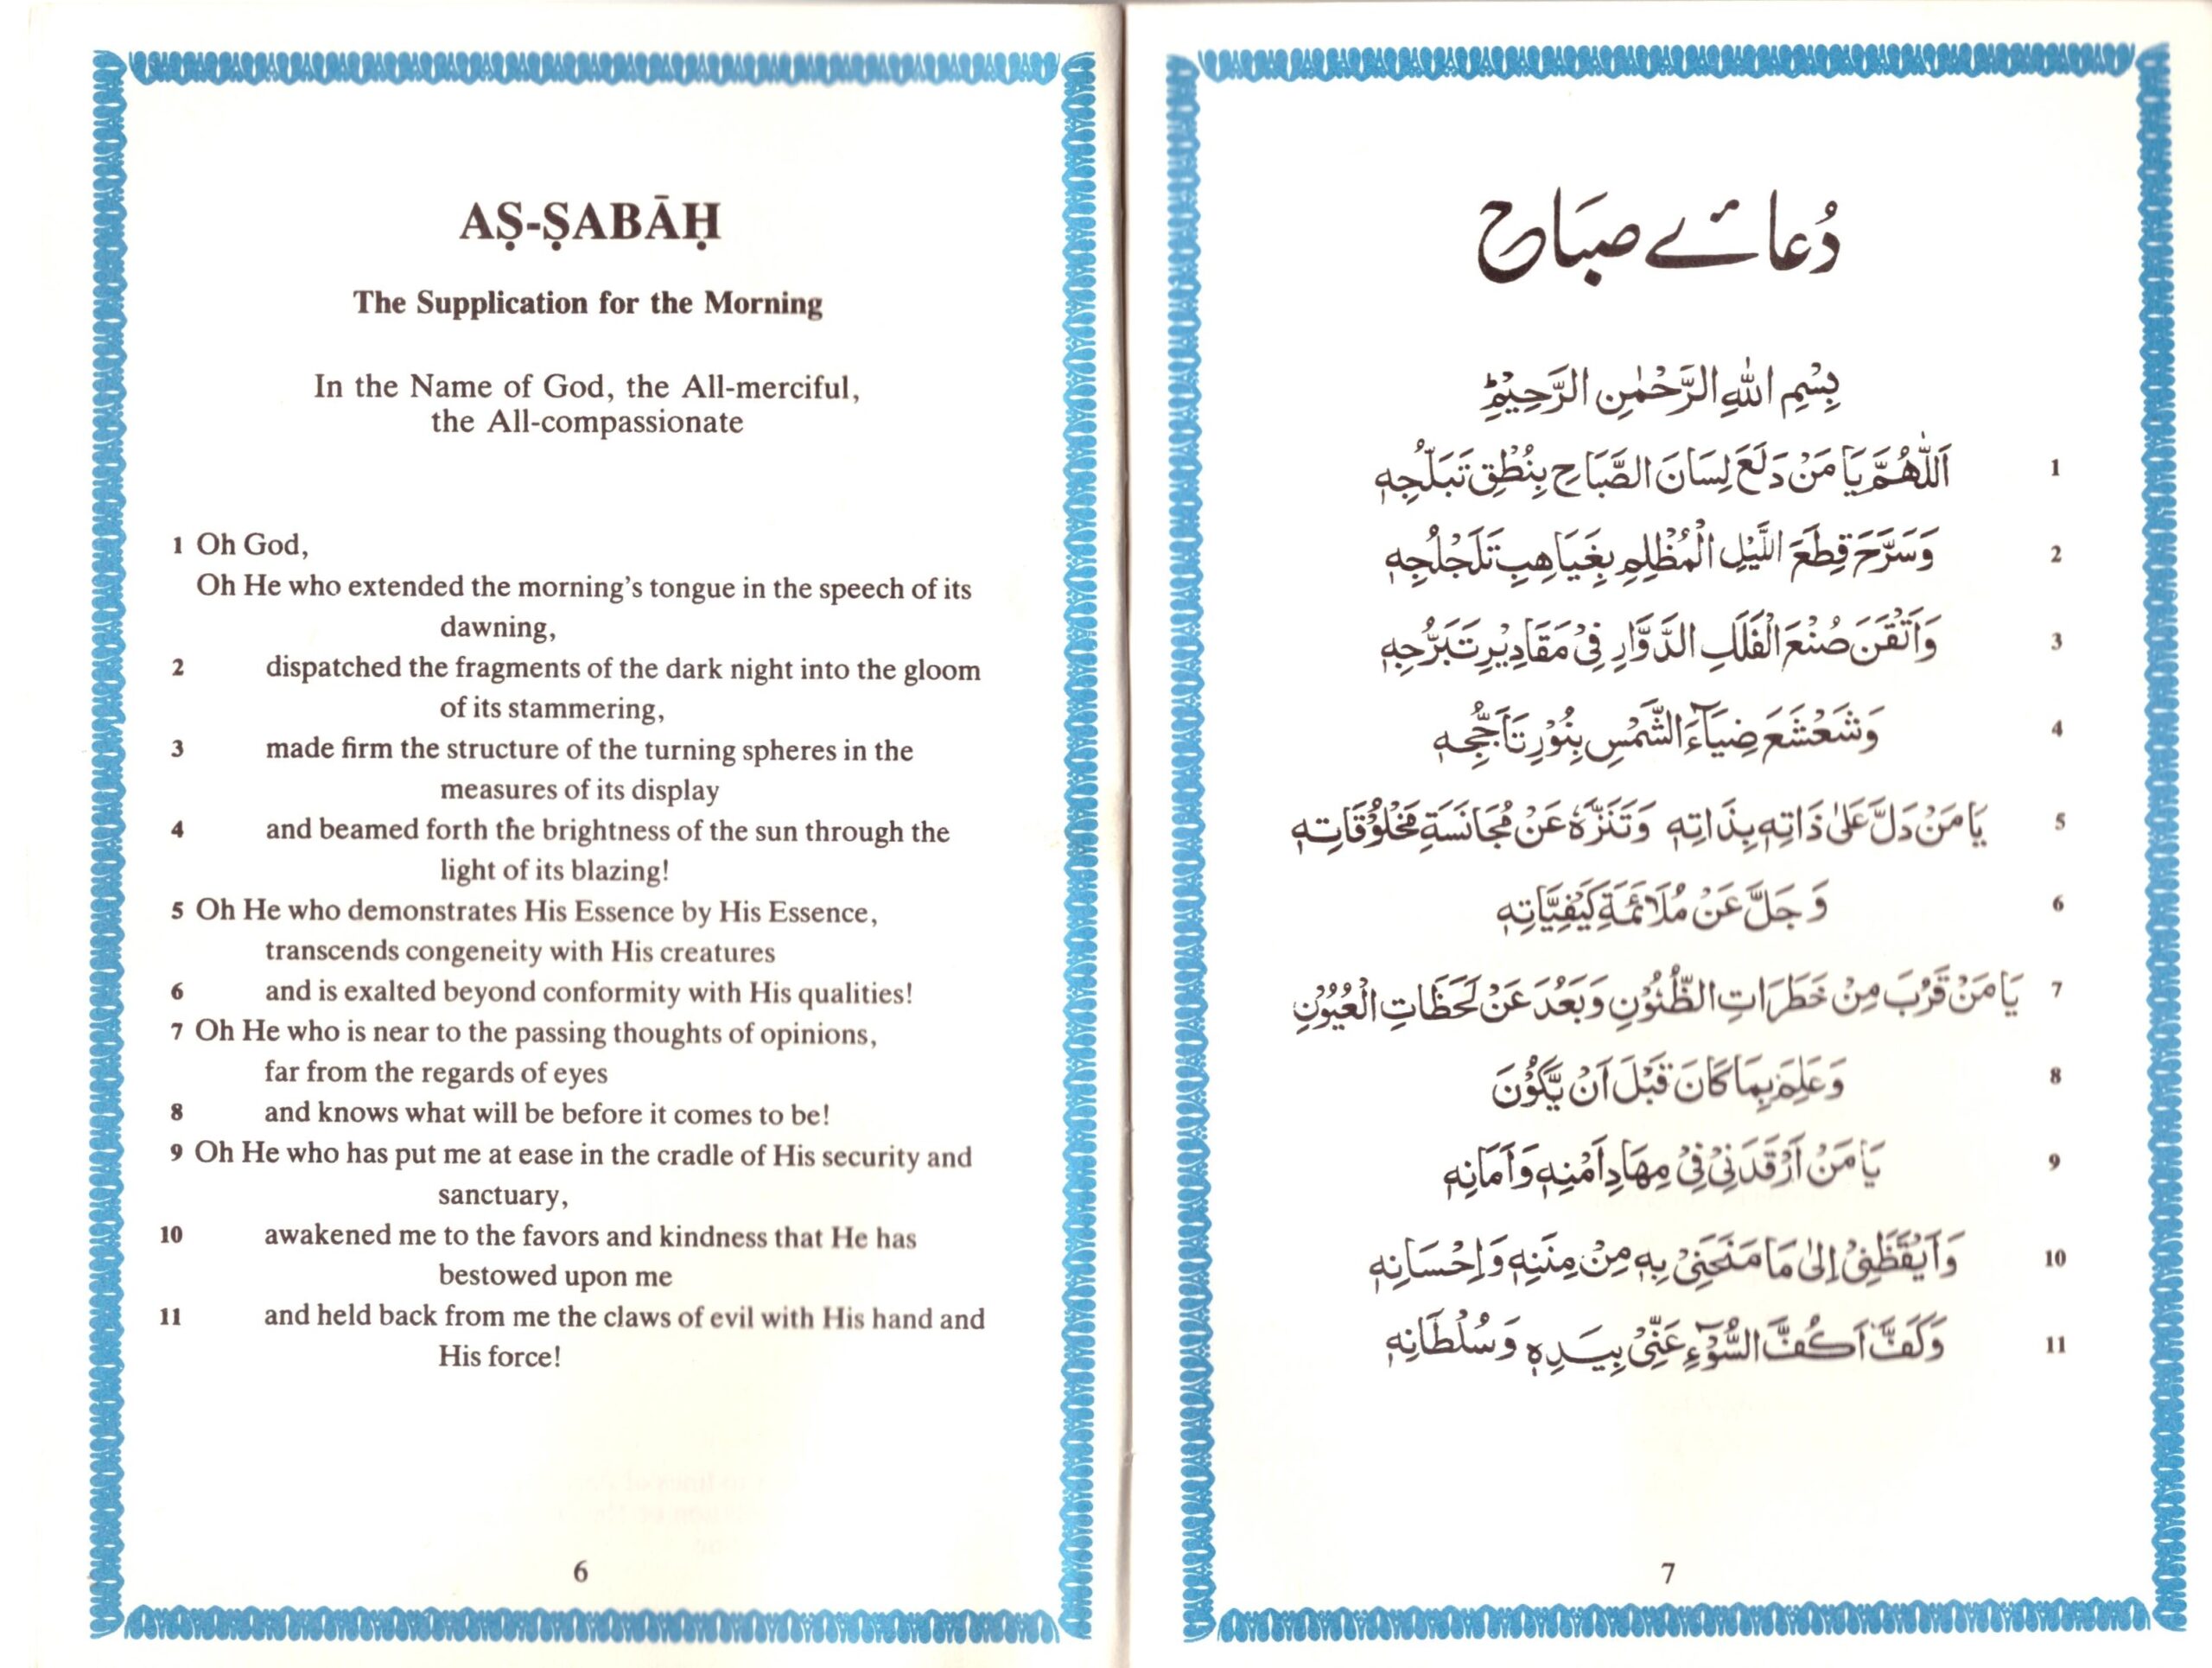 AṢ-ṢABĀḤ
The Supplication for the Morning
In the Name of God, the All-merciful,
the All-compassionate
1 Oh God,
Oh He who extended the morning's tongue in the speech of its
dawning,
2 dispatched the fragments of the dark night into the gloom
of its stammering,
3 made firm the structure of the turning spheres in the
measures of its display
4 and beamed forth the brightness of the sun through the
light of its blazing!
5 Oh He who demonstrates His Essence by His Essence,
transcends congeneity with His creatures
6 and is exalted beyond conformity with His qualities!
7 Oh He who is near to the passing thoughts of opinions,
far from the regards of eyes
8 and knows what will be before it comes to be!
9 Oh He who has put me at ease in the cradle of His security and
sanctuary,
10 awakened me to the favors and kindness that He has
bestowed upon me
11 and held back from me the claws of evil with His hand and
His force!
6
دُعائے صبَاح
بِسْمِ اللهِ الرَّحْمٰنِ الرَّحِيْمِ
1 اَللّٰهُمَّ يَا مَنْ دَلَعَ لِسَانَ الصَّبَاحِ بِنُطْقِ تَبَلُّجِهٖ
2 وَسَرَّحَ قِطَعَ اللَّيْلِ الْمُظْلِمِ بِغَيَاهِبِ تَلَجْلُجِهٖ
3 وَاَتْقَنَ صُنْعَ الْفَلَكِ الدَّوَّارِ فِيْ مَقَادِيْرِ تَبَرُّجِهٖ
4 وَشَعْشَعَ ضِيَآءَ الشَّمْسِ بِنُوْرِ تَاَجُّجِهٖ
5 يَا مَنْ دَلَّ عَلىٰ ذَاتِهٖ بِذَاتِهٖ وَتَنَزَّهَ عَنْ مُجَانَسَةِ مَخْلُوْقَاتِهٖ
6 وَجَلَّ عَنْ مُلَائَمَةِ كَيْفِيَّاتِهٖ
7 يَا مَنْ قَرُبَ مِنْ خَطَرَاتِ الظُّنُوْنِ وَبَعُدَ عَنْ لَحَظَاتِ الْعُيُوْنِ
8 وَعَلِمَ بِمَا كَانَ قَبْلَ اَنْ يَّكُوْنَ
9 يَا مَنْ اَرْقَدَنِيْ فِيْ مِهَادِ اَمْنِهٖ وَاَمَانِهٖ
10 وَاَيْقَظَنِيْ اِلىٰ مَا مَنَحَنِيْ بِهٖ مِنْ مِنَنِهٖ وَاِحْسَانِهٖ
11 وَكَفَّ اَكُفَّ السُّوْٓءِ عَنِّيْ بِيَدِهٖ وَسُلْطَانِهٖ
7